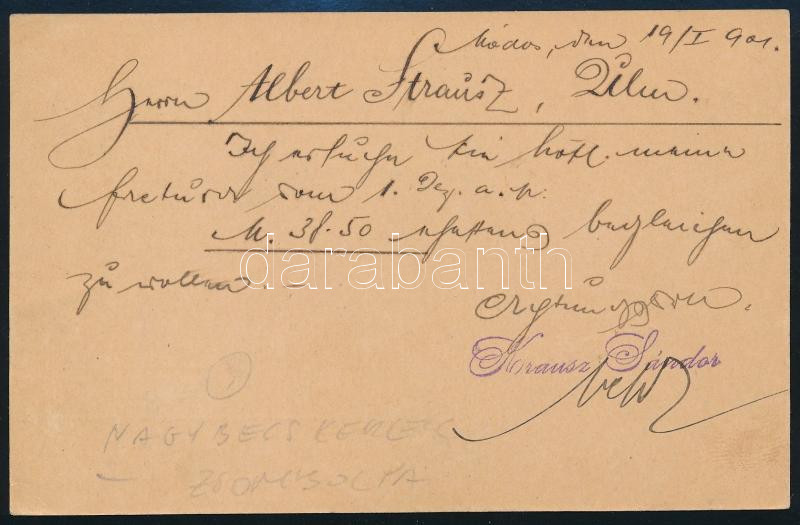 Módos, den 19/I 901.
Herrn Albert Strausz, Ulm.
Ich ersuche Sie höfl. meine
factura vom 1. Dez. a. p.
M. 38.50 begleichen
zu wollen
Krausz Sándor
darabanth
NAGYBECSKEREK
ZSOMBOLYA